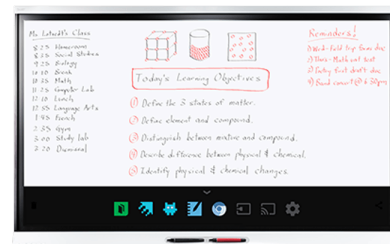 Class
8:25 Homeroom
8:35 Social Studies
9:25 Biology
Break
Math
11:25 Computer Lab
12:10 Lunch
12:55 Language Arts
1:45 French
2:35 Gym
3:00 Study Lab
3:20 Dismissal
Today's Learning Objectives
1 Define the 3 states of matter.
2 Define element and compound.
3 Distinguish between mixture and compound.
4 Describe difference between physical & chemical.
5 Identify physical & chemical changes.
Reminders!
1) Wed - Field trip forms due
2) Thurs - Math unit test
3) draft due
4) Band concert @ 6:30pm